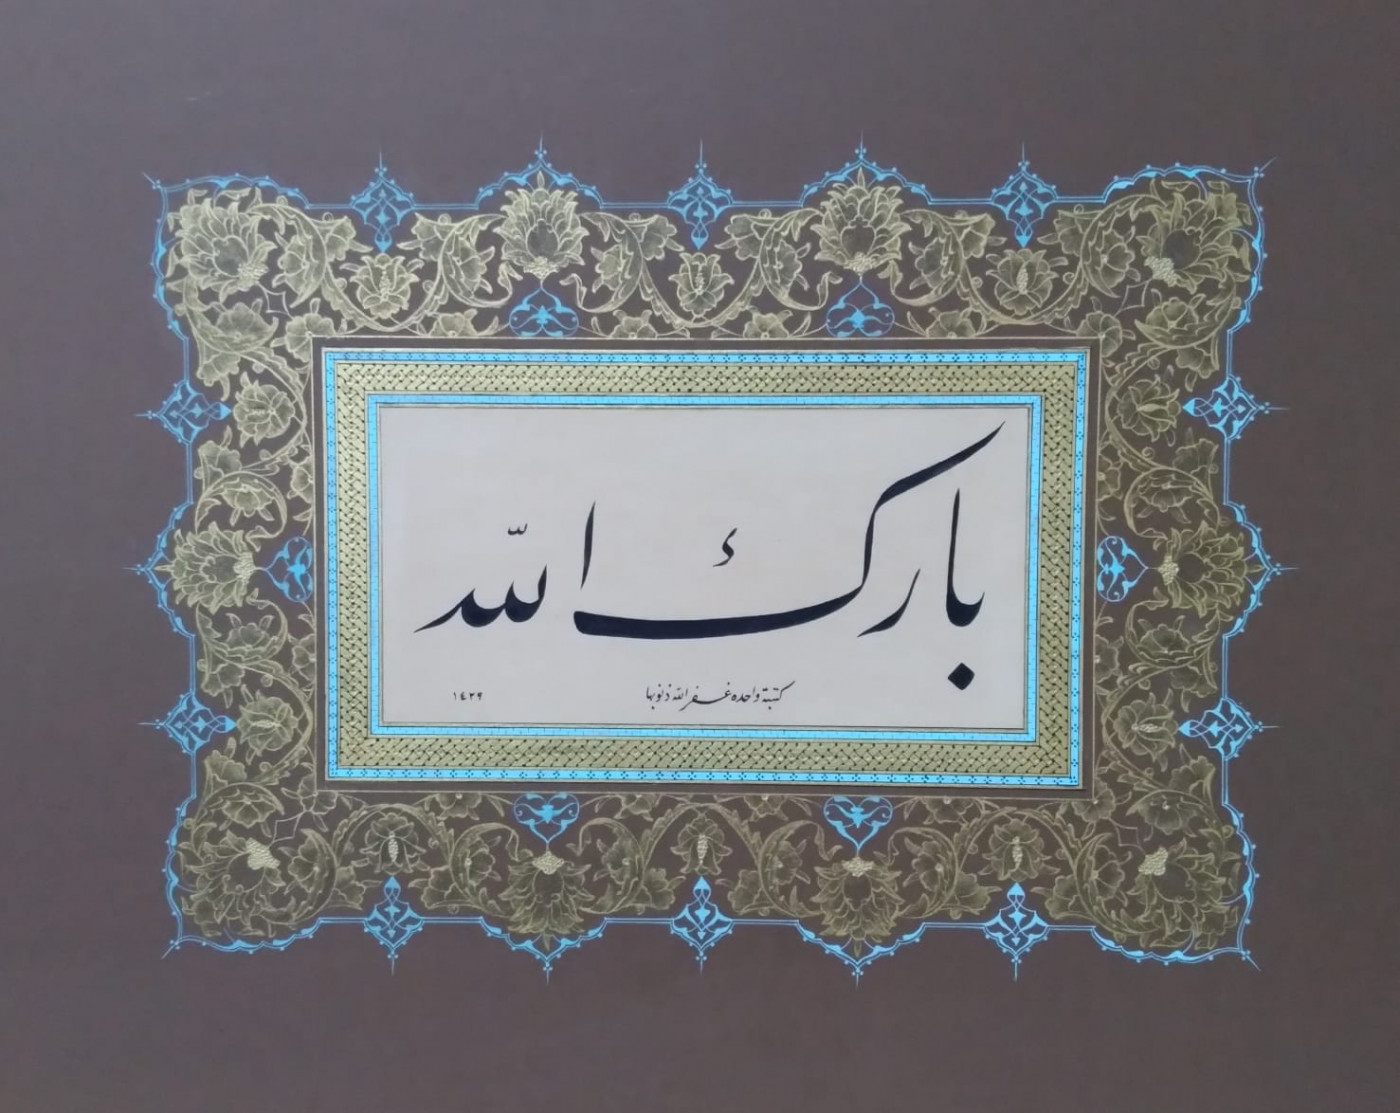 بارك اللّٰه
كتبته واحده غفر اللّٰه ذنوبها
١٤٣٩